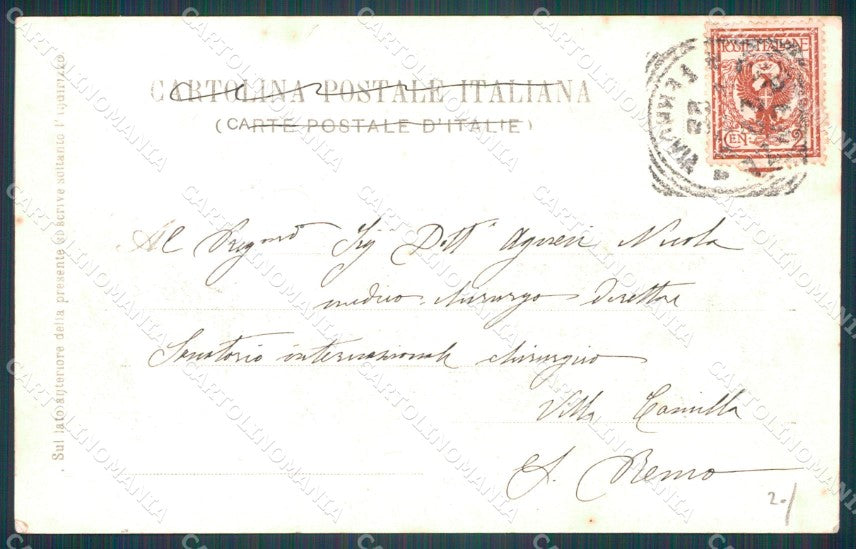 CARTOLINA POSTALE ITALIANA
(CARTE POSTALE D'ITALIE)
POSTE ITALIANE
CEN 2
Al Pregmo Sig Dott Agosti Nicola
medico-chirurgo Direttore
Sanatorio internazionale chirurgico
Villa Camilla
S. Remo
2-/
. Sul lato anteriore della presente si scrive soltanto l'indirizzo
CARTOLINOMANIA